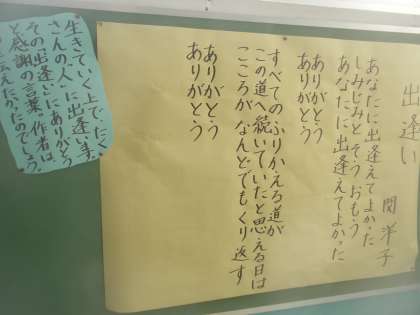 出逢い
関洋子
あなたに出逢えてよかった
しみじみとそうおもう
あなたに出逢えてよかった
ありがとう
ありがとう
すべてのふりかえる道が
この道へ続いていたと思える日は
こころがなんどでもくり返す
ありがとう
ありがとう
生きていく上で、たく
さんの人に出逢います。
その「出逢い」にありがとう
と感謝の言葉、作者は、
伝えたかったのでしょう。